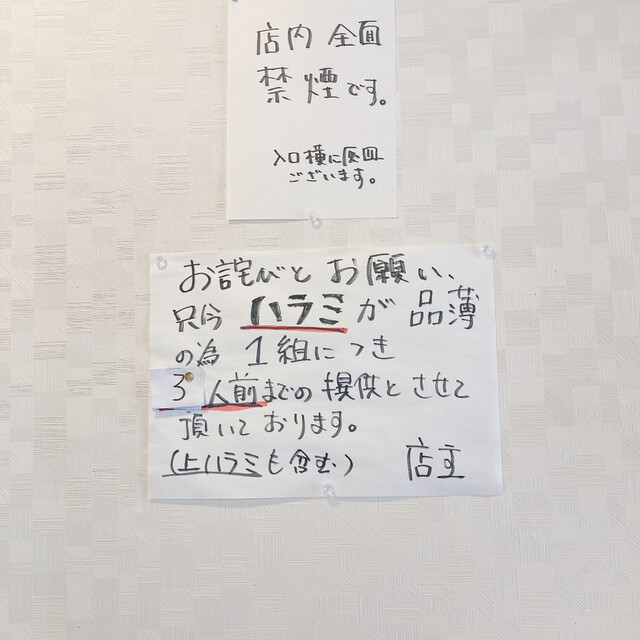 店内 全面
禁煙です。
入口横に灰皿
ございます。
お詫びと お願い、
只今 ハラミが 品薄
の為 1組につき
3人前までの 提供とさせて
頂いております。
(上ハラミも含む) 店主